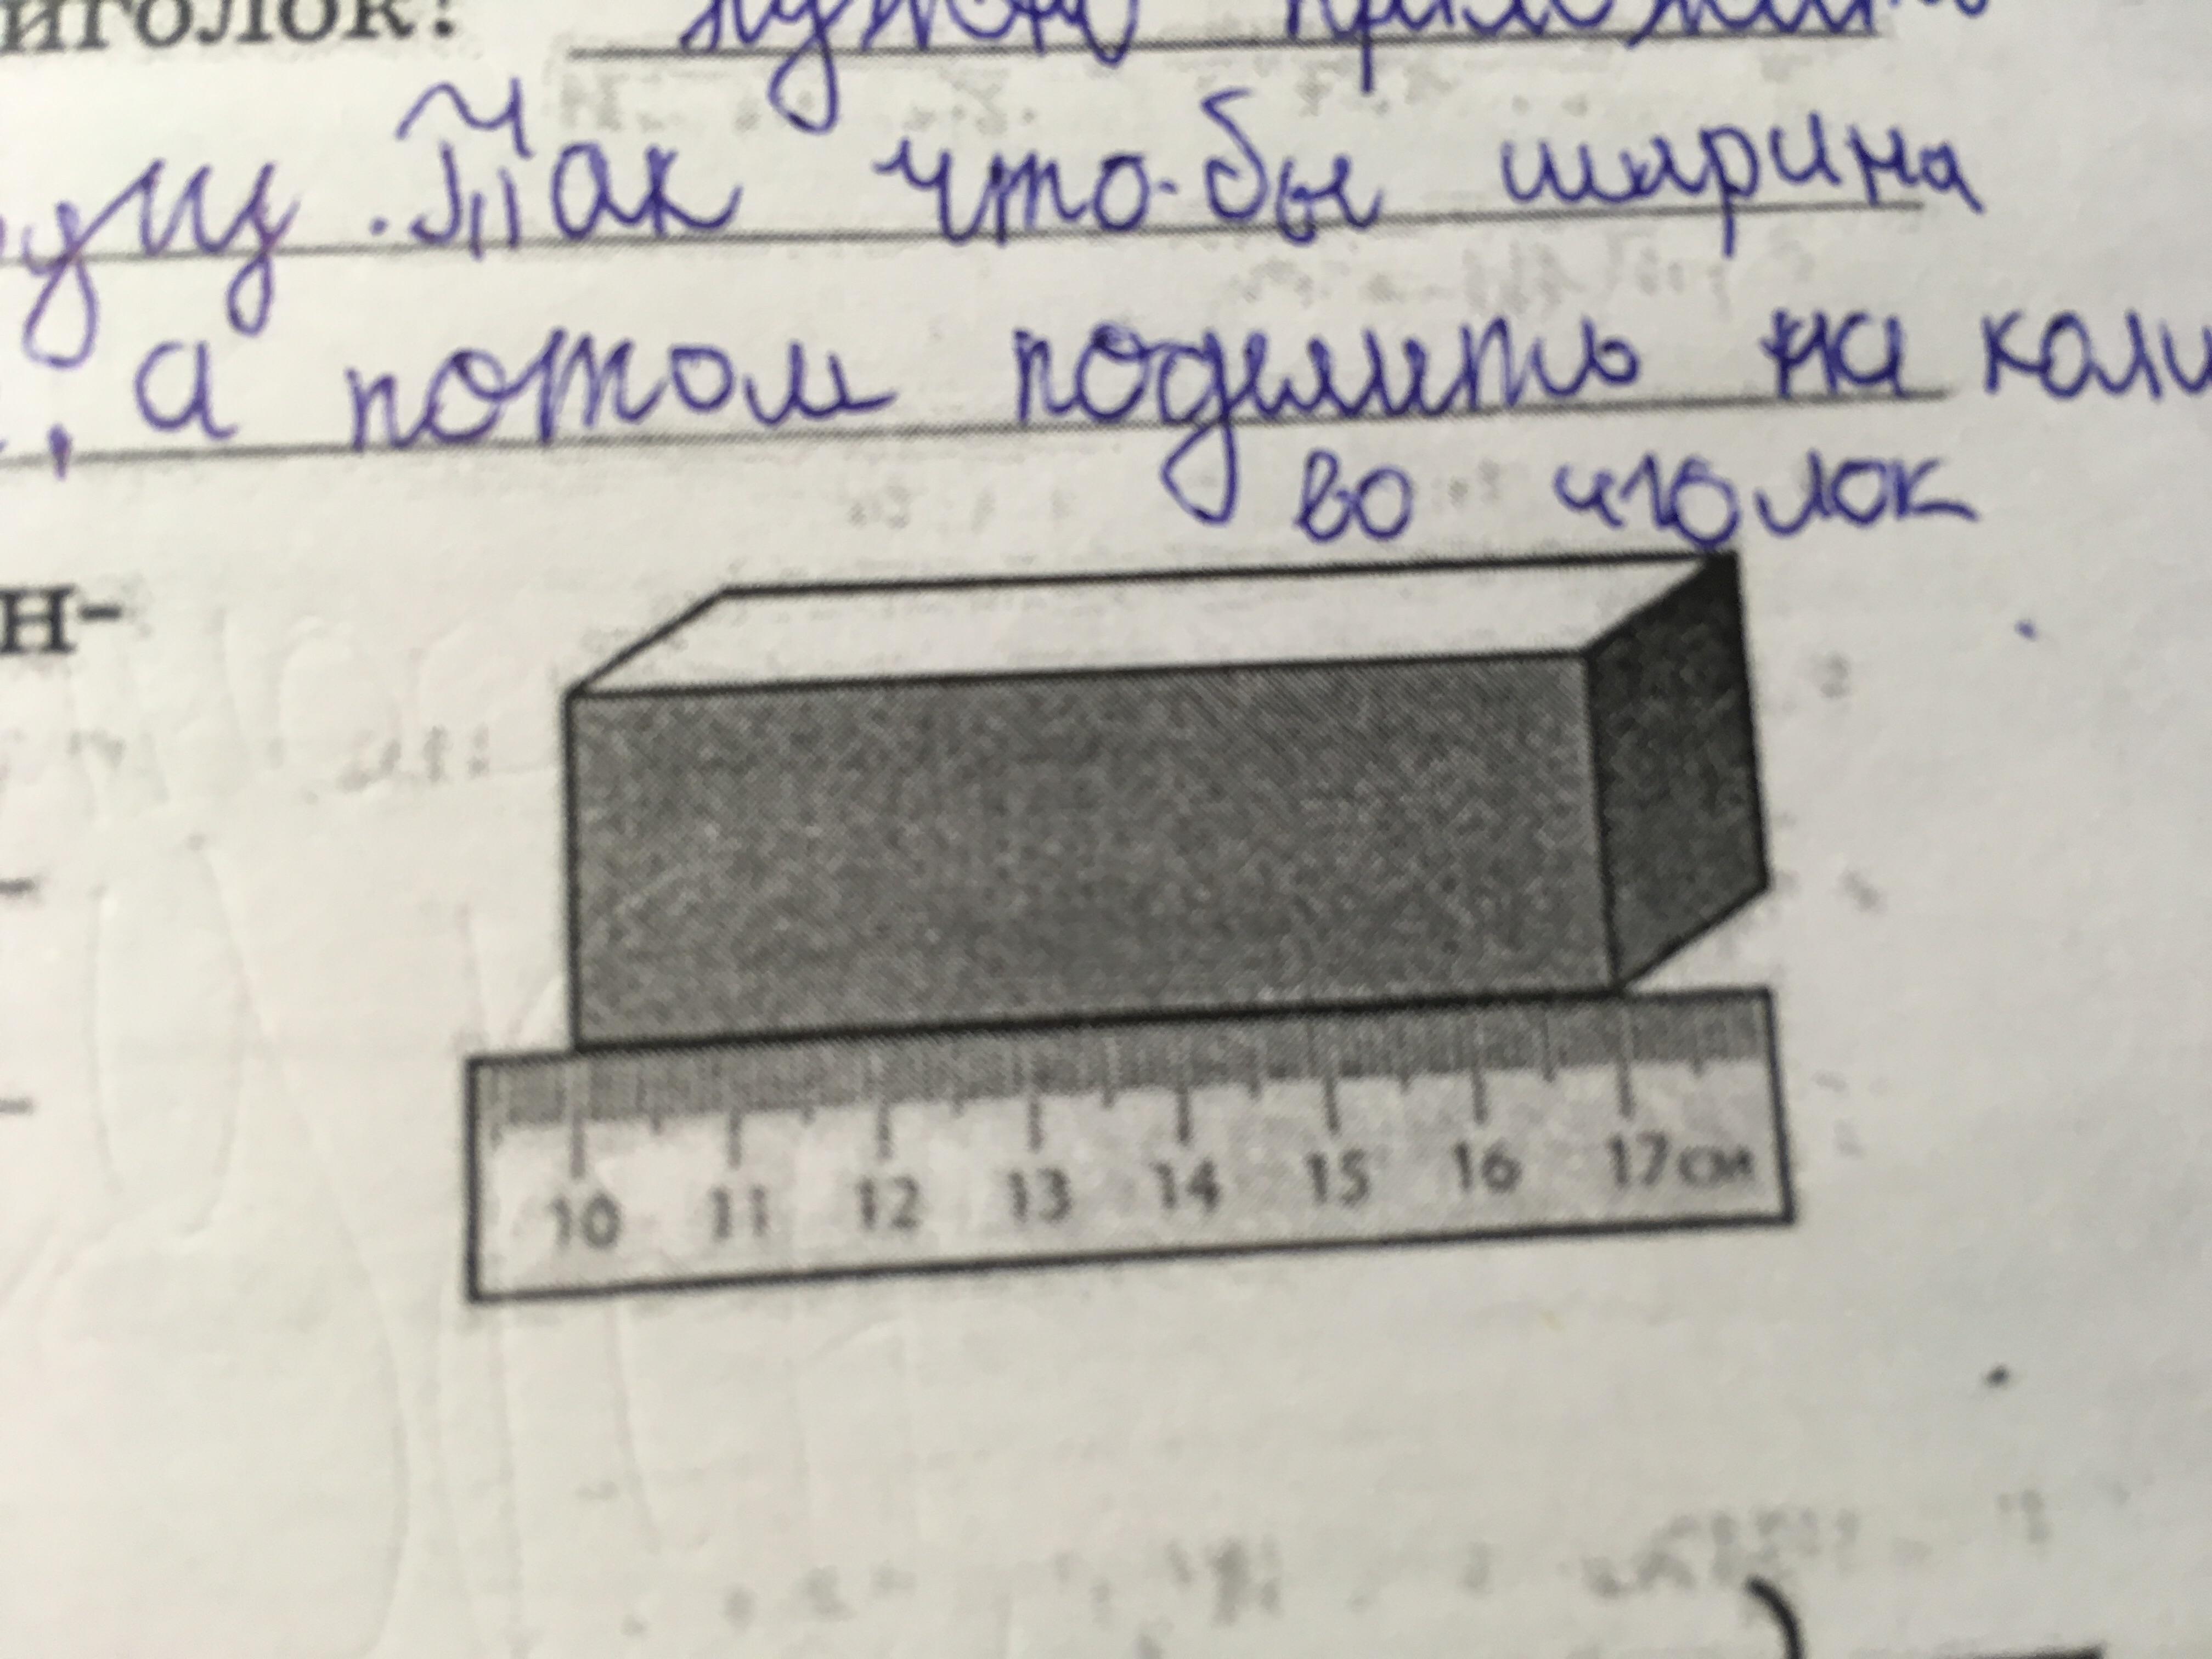 иголок? нужно приложить
. Так что-бы ширина
, а потом поделить на коли
во иголок
н-
10 11 12 13 14 15 16 17 см